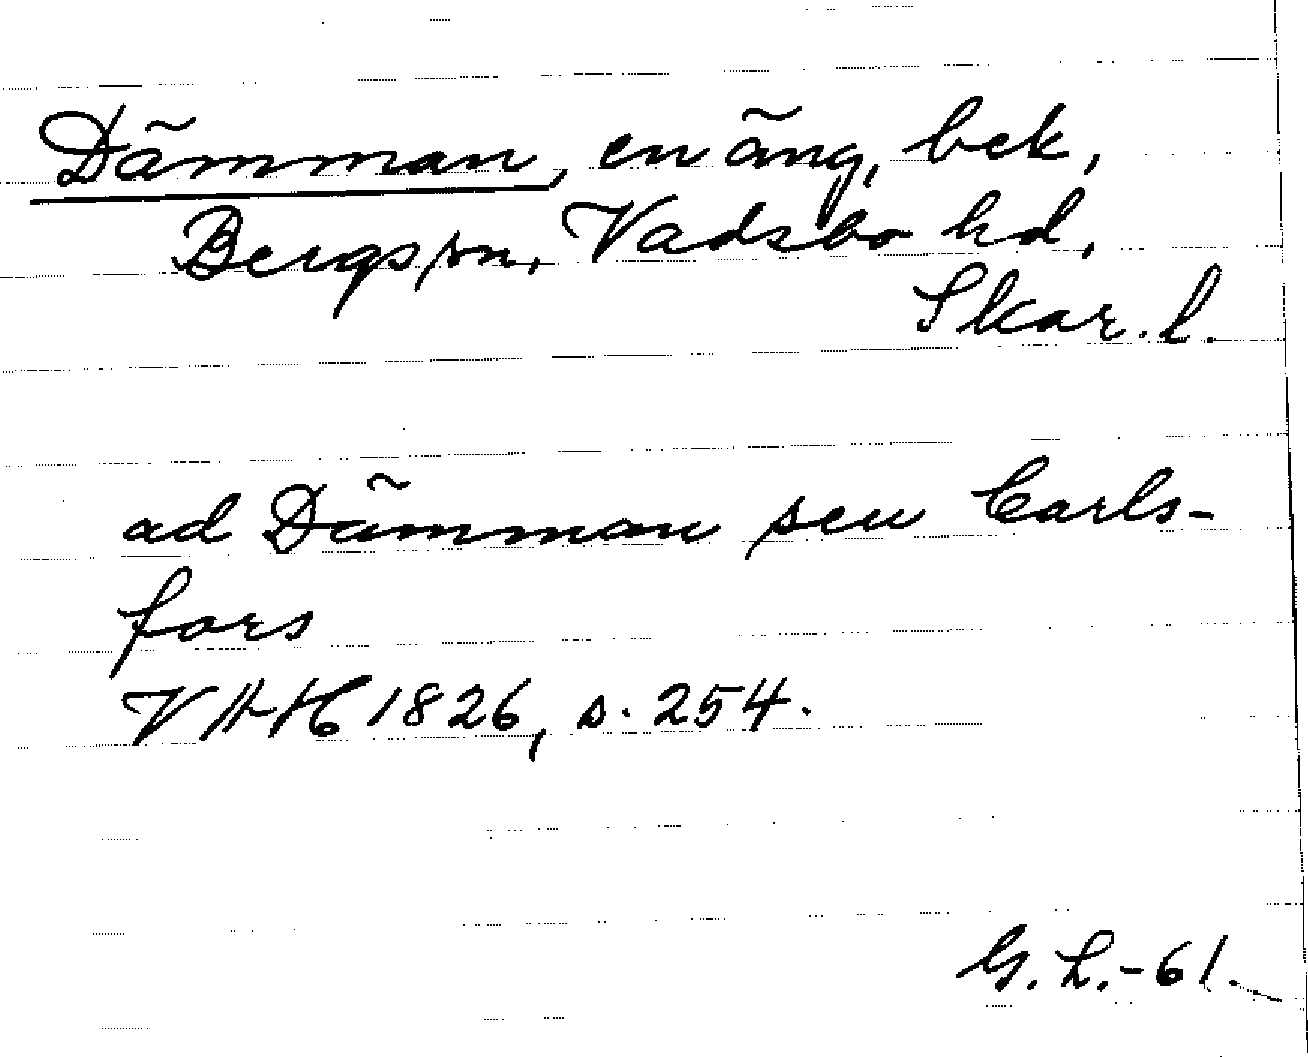 Dämman, en äng, bek,
Bergs sn, Vadsbo hd,
Skar. l.
ad Dämman seu Carls-
fors
VAH 1826, s. 254.
G. L. -61.